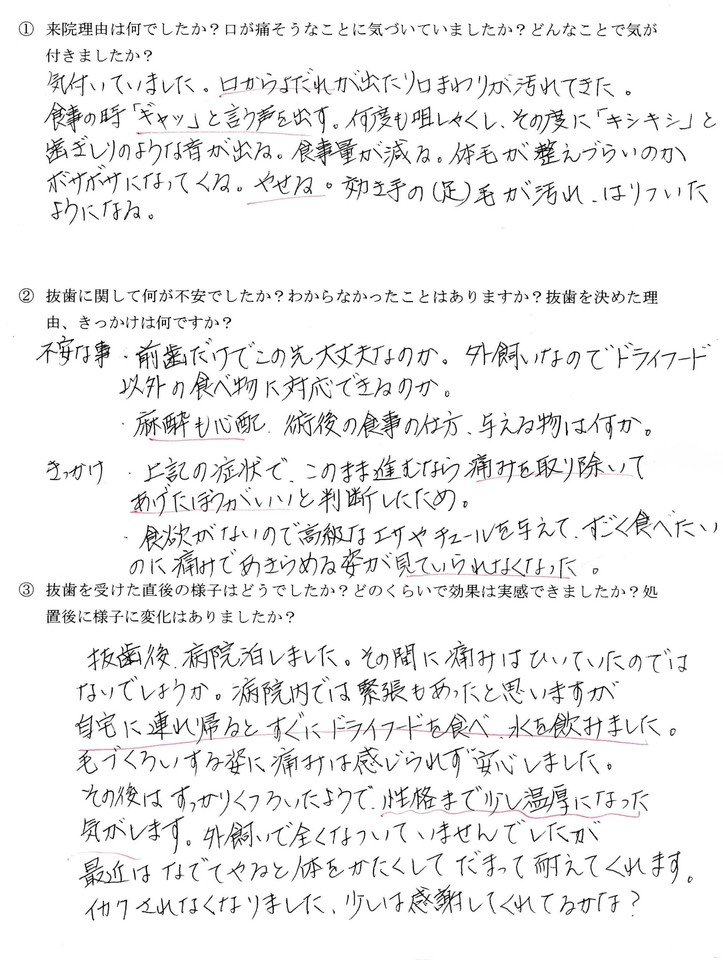 ① 来院理由は何でしたか？口が痛そうなことに気づいていましたか？どんなことで気が
付きましたか？
気付いていました。口からよだれが出たり口まわりが汚れてきた。
食事の時「ギャッ」と言う声を出す。何度も咀しゃくし、その度に「キシキシ」と
歯ぎしりのような音が出る。食事量が減る。体毛が整えづらいのか
ボサボサになってくる。やせる。効き手の（足）毛が汚れ、はりついた
ようになる。
② 抜歯に関して何が不安でしたか？わからなかったことはありますか？抜歯を決めた理
由、きっかけは何ですか？
不安な事 ・前歯だけでこの先大丈夫なのか。外飼いなのでドライフード
以外の食べ物に対応できるのか。
・麻酔も心配、術後の食事の仕方、与える物は何か。
きっかけ ・上記の症状で、このまま進むなら痛みを取り除いて
あげたほうがいいと判断したため。
・食欲がないので高級なエサやチュールを与えて、すごく食べたい
のに痛みであきらめる姿が見ていられなくなった。
③ 抜歯を受けた直後の様子はどうでしたか？どのくらいで効果は実感できましたか？処
置後に様子に変化はありましたか？
抜歯後、病院泊しました。その間に痛みはひいていたのでは
ないでしょうか。病院内では緊張もあったと思いますが
自宅に連れ帰るとすぐにドライフードを食べ、水を飲みました。
毛づくろいする姿に痛みは感じられず安心しました。
その後はすっかりくつろいたようで、性格まで少し温厚になった
気がします。外飼いで全くなついていませんでしたが
最近はなでてやると体をかたくしてだまって耐えてくれます。
イカクされなくなりました、少しは感謝してくれてるかな？